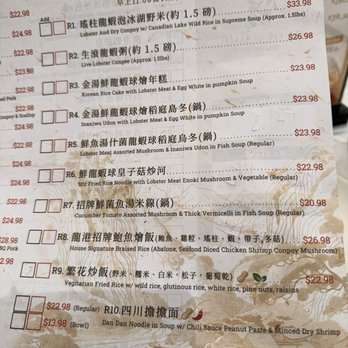 $22.98
Add
R1. 瑤柱龍蝦泡冰湖野米(約 1.5 磅) $33.98
Lobster And Dry Conpoy w/ Canadian Lake Wild Rice in Supreme Soup (Approx. 1.5lbs)
$24.98
R2. 生滾龍蝦粥(約 1.5 磅) $33.98
Live Lobster Congee (Approx. 1.5lbs)
$22.98
R3. 金湯鮮龍蝦球燴年糕 $23.98
Korean Rice Cake with Lobster Meat & Egg White in pumpkin Soup
R4. 金湯鮮龍蝦球燴稻庭島冬(鍋) $24.98
Inaniwa Udon with Lobster Meat & Egg White in pumpkin Soup
$24.98
R5. 鮮魚湯什菌龍蝦球稻庭島冬(鍋) $23.98
Lobster Meat Assorted Mushroom & Inaniwa Udon in Fish Soup (Regular)
R6. 鮮龍蝦球皇子菇炒河 $22.98
Stir Fried Rice Noodle with Lobster Meat Enoki Mushroom & Vegetable (Regular)
$24.98
R7. 招牌鮮菌魚湯米線(鍋) $20.98
Cucumber Tomato Assorted Mushroom & Thick Vermicelli in Fish Soup (Regular)
$24.98
R8. 龍港招牌鮑魚燴飯(鮑魚、雞粒、瑤柱、蝦、帶子,冬菇) $26.98
House Signature Braised Rice (Abalone, Seafood Diced Chicken Shrimp Conpoy Mushroom)
R9. 繁花炒飯(野米、糯米、白米、松子、葡萄乾) $22.98
Vegitarian Fried Rice w/ wild rice, glutinous rice, white rice, pine nuts, raisins
$22.98 (Regular) R10.四川擔擔面
$13.98 (Bowl) Dan Dan Noodle in Soup w/ Chili Sauce Peanut Paste & Minced Dry Shrimp